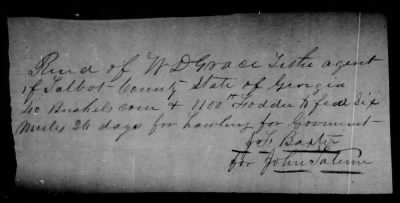 Recd of W D Grace Tithe agent
of Talbot County State of Georgia
40 Bushels corn & 1100 Fodder to feed Six
Mules 26 days for hawling for Goverment
Baxter
for John Tatum